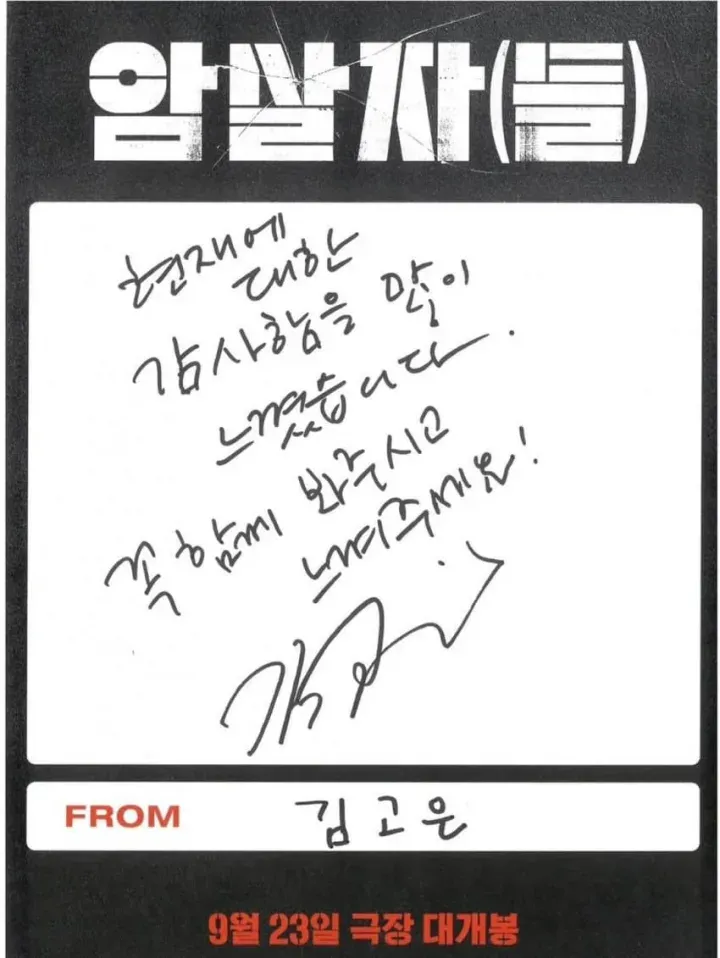 암살자(들)
현재에
대한
감사함을 많이
느꼈습니다.
꼭 함께 봐주시고
느껴주세요!
FROM 김고은
9월 23일 극장 대개봉